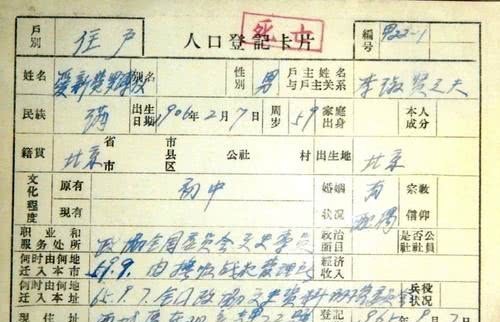 死亡
戶別 住戶 人口登記卡片 編号 男22-1
姓名 愛新覺羅溥儀 別名 性別 男 戶主姓名与戶主关系 李淑贤之夫
民族 满 出生日期 1906年2月7日 周岁 59 家庭出身 本人成分
籍貫 北京 省市 市县区 公社 村 出生地 北京
文化程度 原有 初中 婚姻状况 有配偶 宗教信仰
現有
职业和服务处所 政协全国委员会文史专员 政治面目 是否公社社員
何时由何地迁入本市 59.9. 由抚顺战犯管理所 經济收入
何时由何地迁入本址 65.9.7. 全国政协文史資料 兵役状况
現住址 西城区 登記 1965 9 7